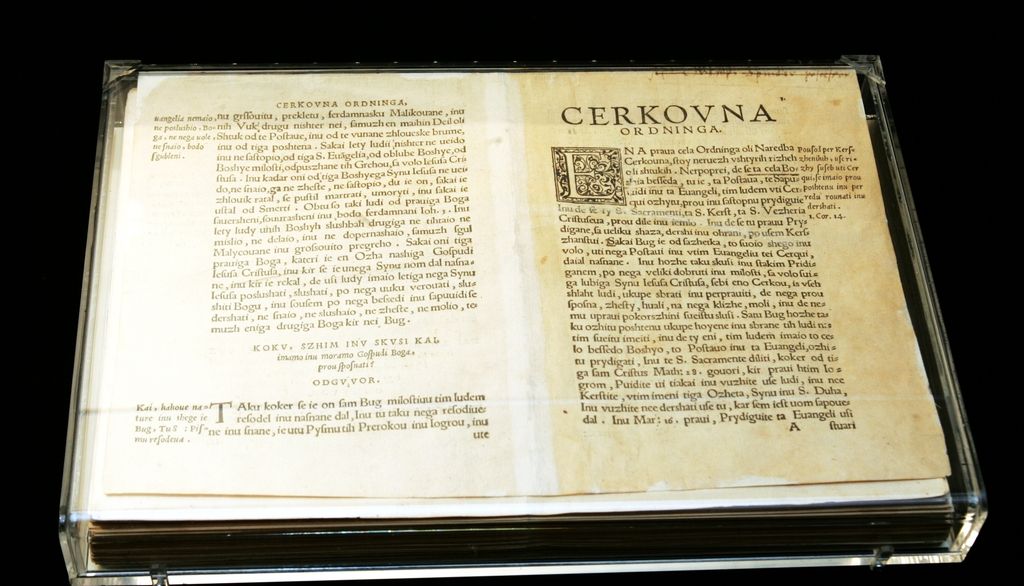 CERKOVNA ORDNINGA,
uangelia nemaio,
ne poslushio, Bo-
ga, ne nega uole,
ne snaio, bodo
sgubleni.
nu grssoiitu, prekletu, ferdamnasku Malikouane, inu
nih Vuk drugu nishter nei, samuzh en maihin Deil oli
Shtuk od te Postaue, inu od te vunane zhloueske brume,
inu od tiga poshtena. Sakai lety ludii nishter ne ueido
inu ne sastopio, od tiga S. Euāgelia, od oblube Boshye, od
Boshye milosti, odpuszhane tih Grehou, sa volo Iesusa Cri
stusa. Inu kadar oni od tiga Boshyega Synu Iesusa ne uei-
do, ne snaio, ga ne zheste, ne sastopio, du ie on, sakai ie
zhlouik ratal, se pustil martrati, umoryti, inu sakai ie
ustal od Smerti. Obtu so taki ludi od prauiga Boga
sauersheni, souurasheni inu bodo ferdamnani Ioh. 3. Inu
lety ludy uhih Boshyh slushbah drugiga ne tihraio ne
mislio, ne delaio, inu ne dopernashaio, samuzh sgul
Malycouane inu grossouito pregreho. Sakai oni tiga
prauiga Boga, kateri ie en Ozha nashiga Gospudi
Iesusa Cristusa, inu kir se ie unega Synu nom dal nasna-
ne, inu kir ie rekal, de usi ludy imaio letiga nega Synu
Iesusa poslushati, slushati, po nega uuku verouati, slu-
shiti Bogu, inu sousem po nega bessedi inu sapuuidi se
dershati, ne snaio, ne slushaio, ne zheste, ne molio, to-
muzh eniga drugiga Boga kir nei Bug.
KOKV, SZHIM INV SKVSI KAI,
imamo inu moramo Gospudi Boga,
prou sposnati?
ODGVVOR.
Kai, kakoue na-
ture inu shege ie
Bug, Tu S: Pis-
mu resodeua.
TAku koker se ie on sam Bug milostiuu tim ludem
resodel inu nasnane dal, Inu tu taku nega resodiue-
ne inu snane, ie utu Pysmu tih Prerokou inu Iogrou, inu
ute
CERKOVNA
ORDNINGA.
ENA praua cela Ordninga oli Naredba
Cerkouna, stoy neruezh vshtyrih rizheh
oli shtukih. Nerpoprei, de se ta cela Bo-
shia bessēda, tu ie, ta Postaua, te Sapu-
uidi inu ta Euangeli, tim ludem vti Cer-
qui ozhytu, prou inu sastopnu prydiguie
Inu de se ty S. Sacramenti, ta S. Kerst, ta S. Vezheria
Cristuseua, prou dile inu iemlo. Inu de se tu prauu Pry
digane, sa ueliku shaza, dershi inu ohrani, po usem Kers
zhanstui. Sakai Bug ie od sazhetka, to suoio shego inu
volo, uti nega Postaui inu vtim Euangeliu tei Cerqui,
daial nasnane. Inu hozhe taku skusi inu stakim Pridi-
ganem, po nega veliki dobruti inu milosti, sa volo sui-
ga lubiga Synu Iesusa Cristusa, sebi eno Cerkou, is vseh
shlaht ludi, ukupe sbrati inu perprauiti, de nega prou
sposna, zhesty, huali, na nega klizhe, moli, inu de ne-
mu upraui pokorszhini sueistu slusi. Satu Bug hozhe ta-
ku ozhitu poshtenu ukupe hoyene inu sbrane tih ludi n:
tim sueitu imeiti, inu de ty eni, tim ludem imaio to ce-
lo bessēdo Boshyo, to Postauo inu ta Euangeli, ozhi-
tu prydigati, Inu te S. Sacramente diliti, koker od ti-
ga sam Cristus Math: 28. gouori, kir praui htim Io-
grom, Puidite ui tiakai inu vuzhite use ludi, inu nee
Kerstite, vtim imeni tiga Ozheta, Synu inu S. Duha,
Inu vuzhite nee dershati use tu, kar sem iest uom sapoue-
dal. Inu Mar: 16. praui, Prydiguite ta Euangeli usi
A stuari
1. Cor. 14.